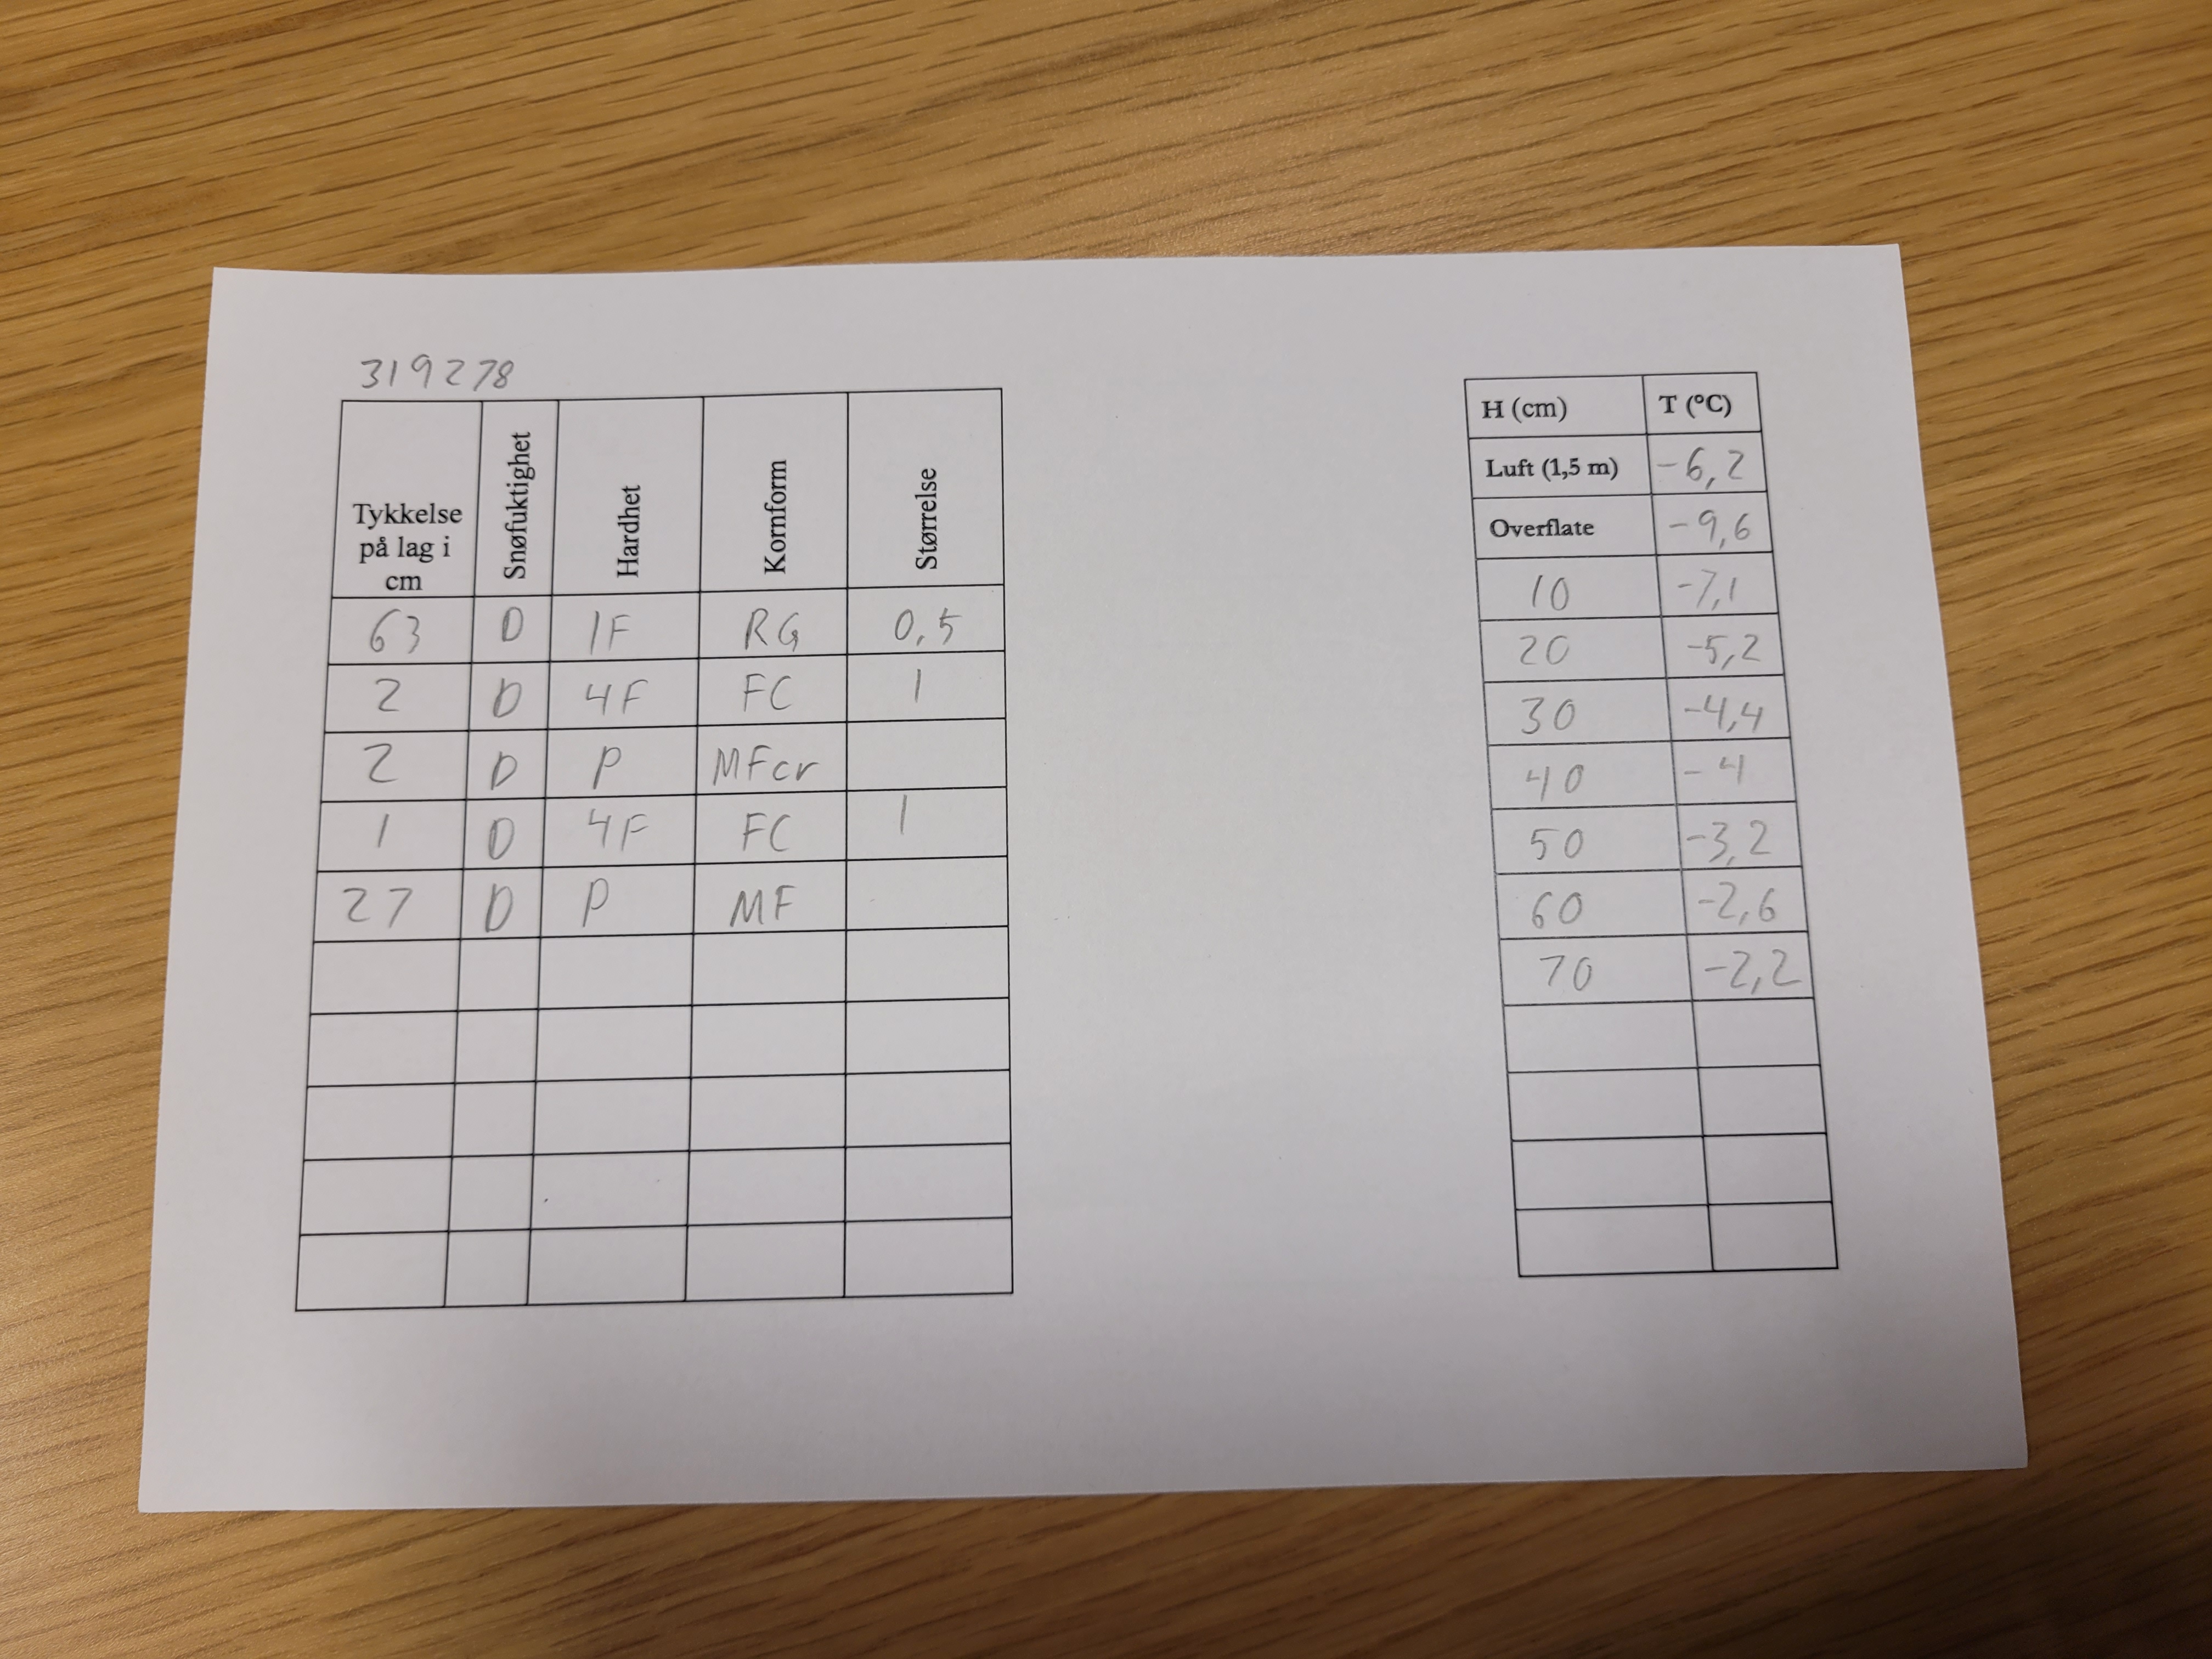 319278
Tykkelse på lag i cm Snøfuktighet Hardhet Kornform Størrelse
63 D 1F RG 0,5
2 D 4F FC 1
2 D P MFcr
1 D 4F FC 1
27 D P MF
H (cm) T (°C)
Luft (1,5 m) -6,2
Overflate -9,6
10 -7,1
20 -5,2
30 -4,4
40 -4
50 -3,2
60 -2,6
70 -2,2